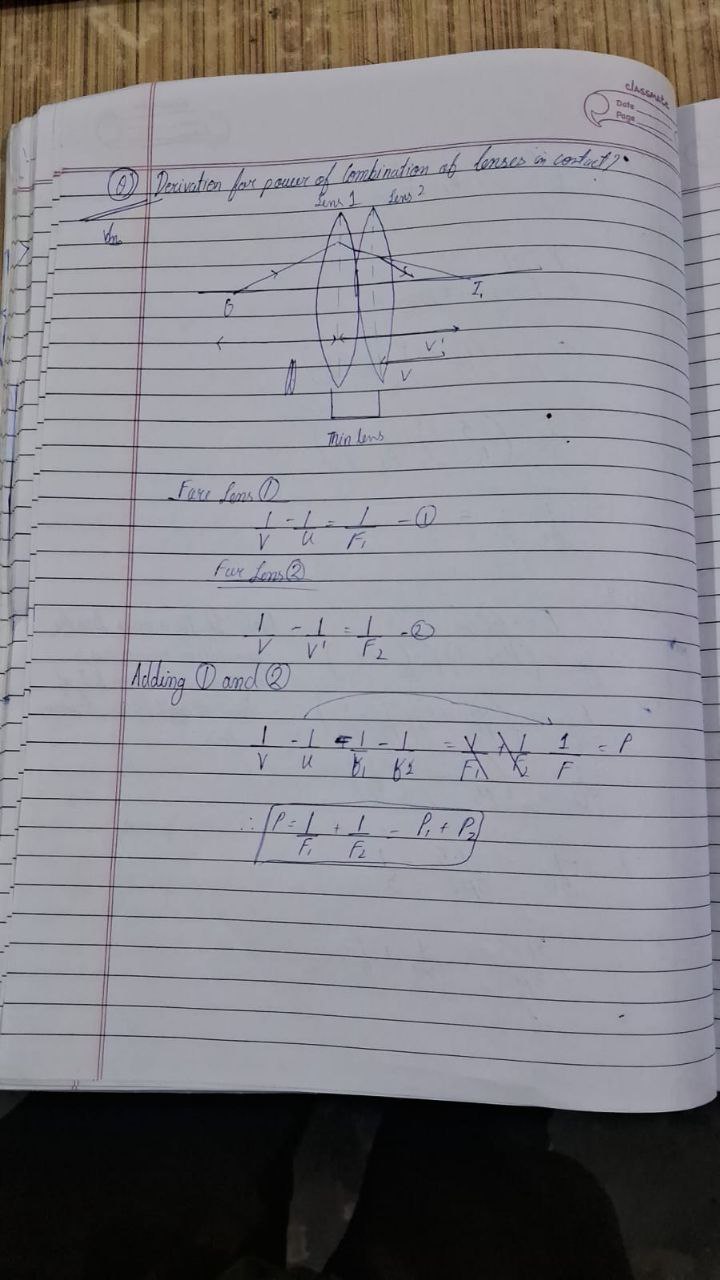 classmate
Date
Page
Q) Derivation for power of Combination of lenses in contact?
Lens 1 Lens 2
O I₁
V'
V
Thin lens
Fore Lens ①
1/V - 1/u = 1/F₁ - ①
For Lens ②
1/V - 1/V' = 1/F₂ - ②
Adding ① and ②
1/V - 1/u = 1/F = P
∴ P = 1/F₁ + 1/F₂ = P₁ + P₂